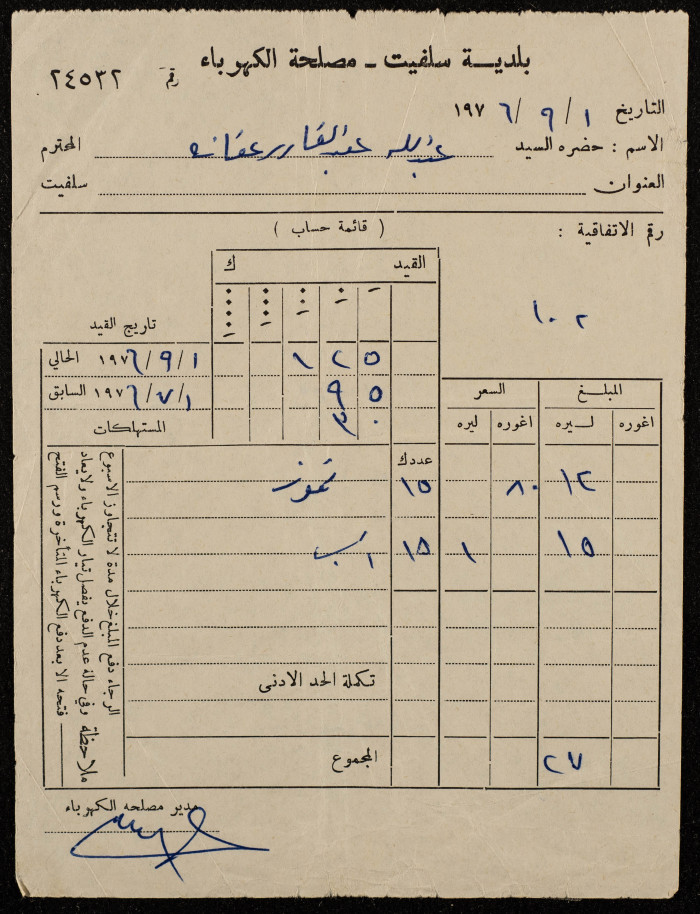 بلديـة سلفيت ـ مصلحة الكهرباء
رقم ٢٤٥٣٢
التاريخ ١ / ٩ / ١٩٧٦
الاسم : حضره السيد عبدالله عبد القادر عفانه المحترم
العنوان سلفيت
رقم الاتفاقية :
( قائمة حساب )
١٠٢
القيد ك
تاريخ القيد
١٢٥ ١٩٧٦/٩/١ الحالي
٩٥ ١٩٧٦/٧/١ السابق
٣٠ المستهلكات
المبلغ السعر
اغوره لـيره اغوره ليره
عدد ك
١٢ ٨٠ ١٥ تموز
١٥ ١ ١٥ آب
تكملة الحد الادنى
المجموع ٢٧
الرجاء دفع المبلغ خلال مدة لا تتجاوز الاسبوع
وفي حالة عدم الدفع يفصل تيار الكهرباء ولا يعاد
فتحه الا بعد دفع الكهرباء المتأخرة ورسم الفتح
ملاحظة
مدير مصلحه الكهرباء